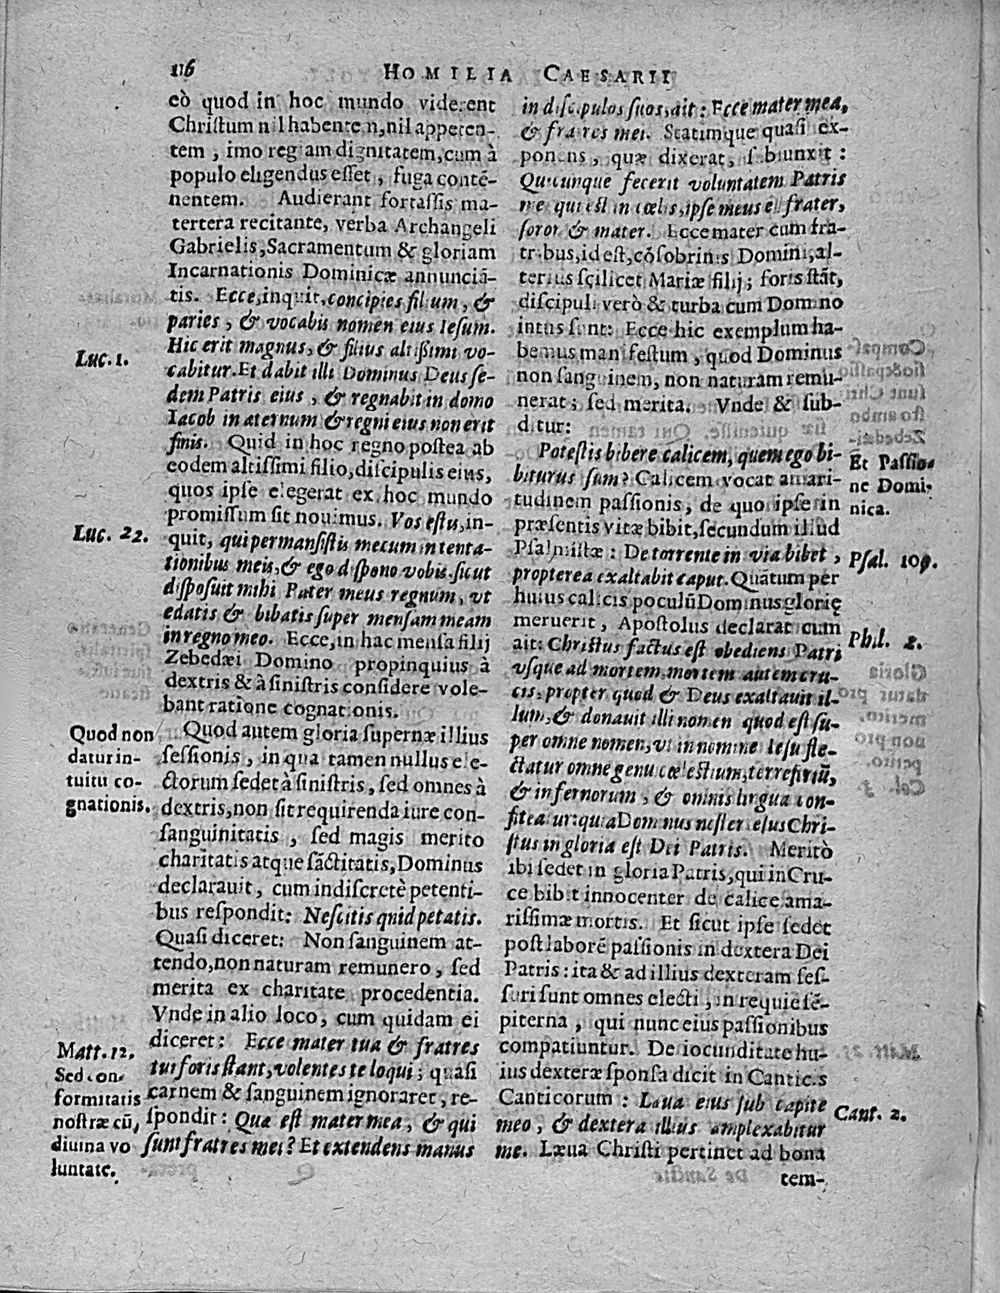 116
HOMILIA CAESARII
eò quod in hoc mundo viderent
Chriſtum nil habentem, nil appeten-
tem, imo regiam dignitatem, cum à
populo eligendus eſſet, fuga contē-
nentem. Audierant fortaſſis ma-
tertera recitante, verba Archangeli
Gabrielis, Sacramentum & gloriam
Incarnationis Dominicæ annunciā-
tis. Ecce, inquit, concipies filium, &
paries, & vocabis nomen eius Ieſum.
Hic erit magnus, & filius altiſſimi vo-
cabitur. Et dabit illi Dominus Deus ſe-
dem Patris eius, & regnabit in domo
Iacob in æternum & regni eius non erit
finis. Quid in hoc regno poſtea ab
eodem altiſſimi filio, diſcipulis eius,
quos ipſe elegerat ex hoc mundo
promiſſum ſit nouimus. Vos eſtis, in-
quit, qui permanſiſtis mecum in tenta-
tionibus meis, & ego diſpono vobis ſicut
diſpoſuit mihi Pater meus regnum, vt
edatis & bibatis ſuper menſam meam
in regno meo. Ecce, in hac menſa filij
Zebedæi Domino propinquius à
dextris & à ſiniſtris conſidere vole-
bant ratione cognationis.
Quod autem gloria ſupernæ illius
ſeſſionis, in qua tamen nullus ele-
ctorum ſedet à ſiniſtris, ſed omnes à
dextris, non ſit requirenda iure con-
ſanguinitatis, ſed magis merito
charitatis atque ſāctitatis, Dominus
declarauit, cum indiſcretè petenti-
bus reſpondit: Neſcitis quid petatis.
Quaſi diceret: Non ſanguinem at-
tendo, non naturam remunero, ſed
merita ex charitate procedentia.
Vnde in alio loco, cum quidam ei
diceret: Ecce mater tua & fratres
tui foris ſtant, volentes te loqui; quaſi
carnem & ſanguinem ignoraret, re-
ſpondit: Quæ eſt mater mea, & qui
ſunt fratres mei? Et extendens manus
Luc. 1.
Luc. 22.
Quod non
datur in-
tuitu co-
gnationis.
Matt. 12.
Sed con-
formitatis
noſtræ cū,
diuina vo
luntate.
in diſcipulos ſuos, ait: Ecce mater mea,
& fratres mei. Statimque quaſi ex-
ponens, quæ dixerat, ſubiunxit:
Quicunque fecerit voluntatem Patris
mei qui eſt in cœlis, ipſe meus eſt frater,
ſoror & mater. Ecce mater cum fra-
tribus, id eſt, cōſobrinis Domini, al-
terius ſcilicet Mariæ filij; foris ſtāt,
diſcipuli verò & turba cum Domino
intus ſunt: Ecce hic exemplum ha-
bemus manifeſtum, quod Dominus
non ſanguinem, non naturam remu-
nerat; ſed merita. Vnde & ſub-
ditur:
Poteſtis bibere calicem, quem ego bi-
biturus ſum? Calicem vocat amari-
tudinem paſſionis, de quo ipſe in
præſentis vitæ bibit, ſecundum illud
Pſalmiſtæ: De torrente in via bibet,
propterea exaltabit caput. Quātum per
huius calicis poculū Dominus glorię
meruerit, Apoſtolus declarat cum
ait: Chriſtus factus eſt obediens Patri
vſque ad mortem, mortem autem cru-
cis, propter quod & Deus exaltauit il-
lum, & donauit illi nomen quod eſt ſu-
per omne nomen, vt in nomine Ieſu fle-
ctatur omne genu cœleſtium, terreſtriū,
& infernorum, & omnis lingua con-
fiteatur: quia Dominus noſter Ieſus Chri-
ſtus in gloria eſt Dei Patris. Meritò
ibi ſedet in gloria Patris, qui in Cru-
ce bibit innocenter de calice ama-
riſſimæ mortis. Et ſicut ipſe ſedet
poſt laborē paſſionis in dextera Dei
Patris: ita & ad illius dexteram ſeſ-
ſuri ſunt omnes electi, in requie ſē-
piterna, qui nunc eius paſſionibus
compatiuntur. De iocunditate hu-
ius dexteræ ſponſa dicit in Canticis
Canticorum: Læua eius ſub capite
meo, & dextera illius amplexabitur
me. Læua Chriſti pertinet ad bona
tem-
Et Paſſio-
ne Domi-
nica.
Pſal. 109.
Phil. 2.
Cant. 2.